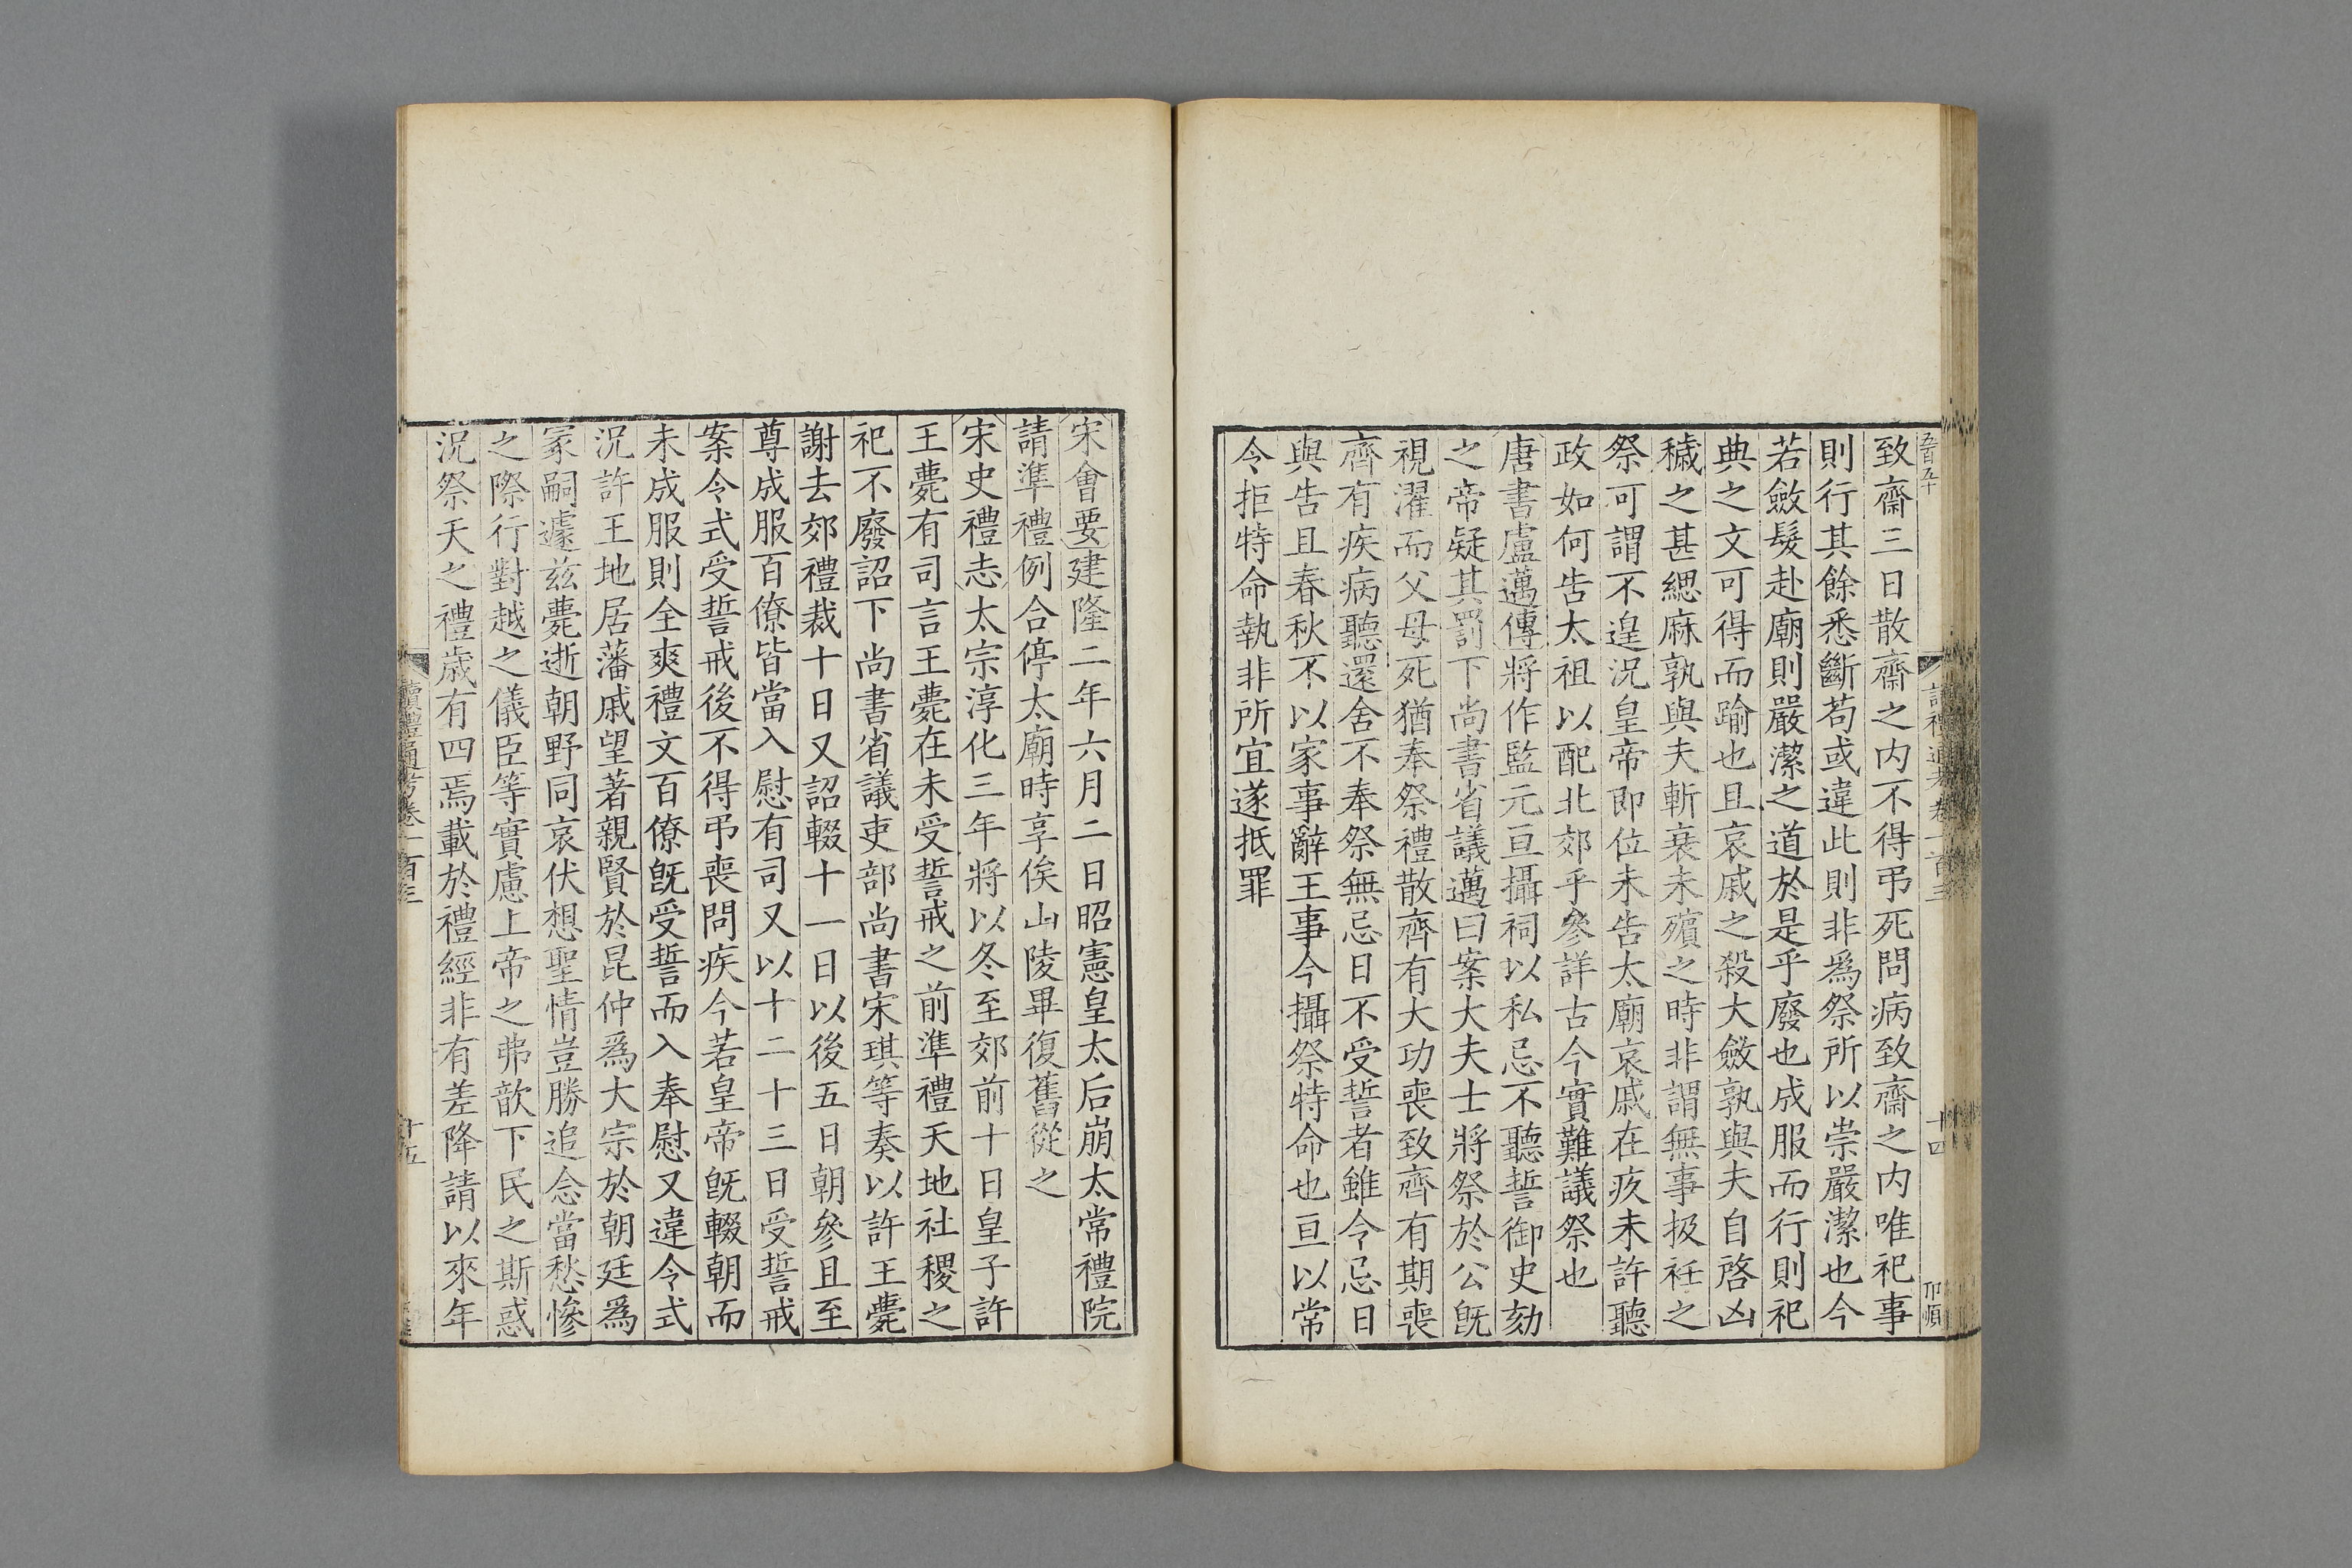 致齋三日散齋之内不得弔死問病致齋之内唯祀事
則行其餘悉斷苟或違此則非爲祭所以崇嚴潔也今
若斂髮赴廟則嚴潔之道於是乎廢也成服而行則祀
典之文可得而踰也且哀戚之殺大斂孰與夫自啓凶
穢之甚緦麻孰與夫斬衰未殯之時非謂無事扱衽之
祭可謂不遑況皇帝即位未告太廟哀戚在疚未許聽
政如何告太祖以配北郊乎參詳古今實難議祭也
唐書盧邁傳將作監元亘攝祠以私忌不聽誓御史劾
之帝疑其罰下尚書省議邁曰案大夫士將祭於公旣
視濯而父母死猶奉祭禮散齊有大功喪致齊有期喪
齊有疾病聽還舍不奉祭無忌日不受誓者雖令忌日
與告且春秋不以家事辭王事今攝祭特命也亘以常
令拒特命執非所宜遂抵罪
宋會要建隆二年六月二日昭憲皇太后崩太常禮院
請準禮例合停太廟時享俟山陵畢復舊從之
宋史禮志太宗淳化三年將以冬至郊前十日皇子許
王薨有司言王薨在未受誓戒之前準禮天地社稷之
祀不廢詔下尚書省議吏部尚書宋琪等奏以許王薨
謝去郊禮裁十日又詔輟十一日以後五日朝參且至
尊成服百僚皆當入慰有司又以十二十三日受誓戒
案令式受誓戒後不得弔喪問疾今若皇帝旣輟朝而
未成服則全爽禮文百僚旣受誓而入奉慰又違令式
況許王地居藩戚望著親賢於昆仲爲大宗於朝廷爲
冢嗣遽茲薨逝朝野同哀伏想聖情豈勝追念當愁慘
之際行對越之儀臣等實慮上帝之弗歆下民之斯惑
況祭天之禮歲有四焉載於禮經非有差降請以來年
讀禮通考卷一百三
十五